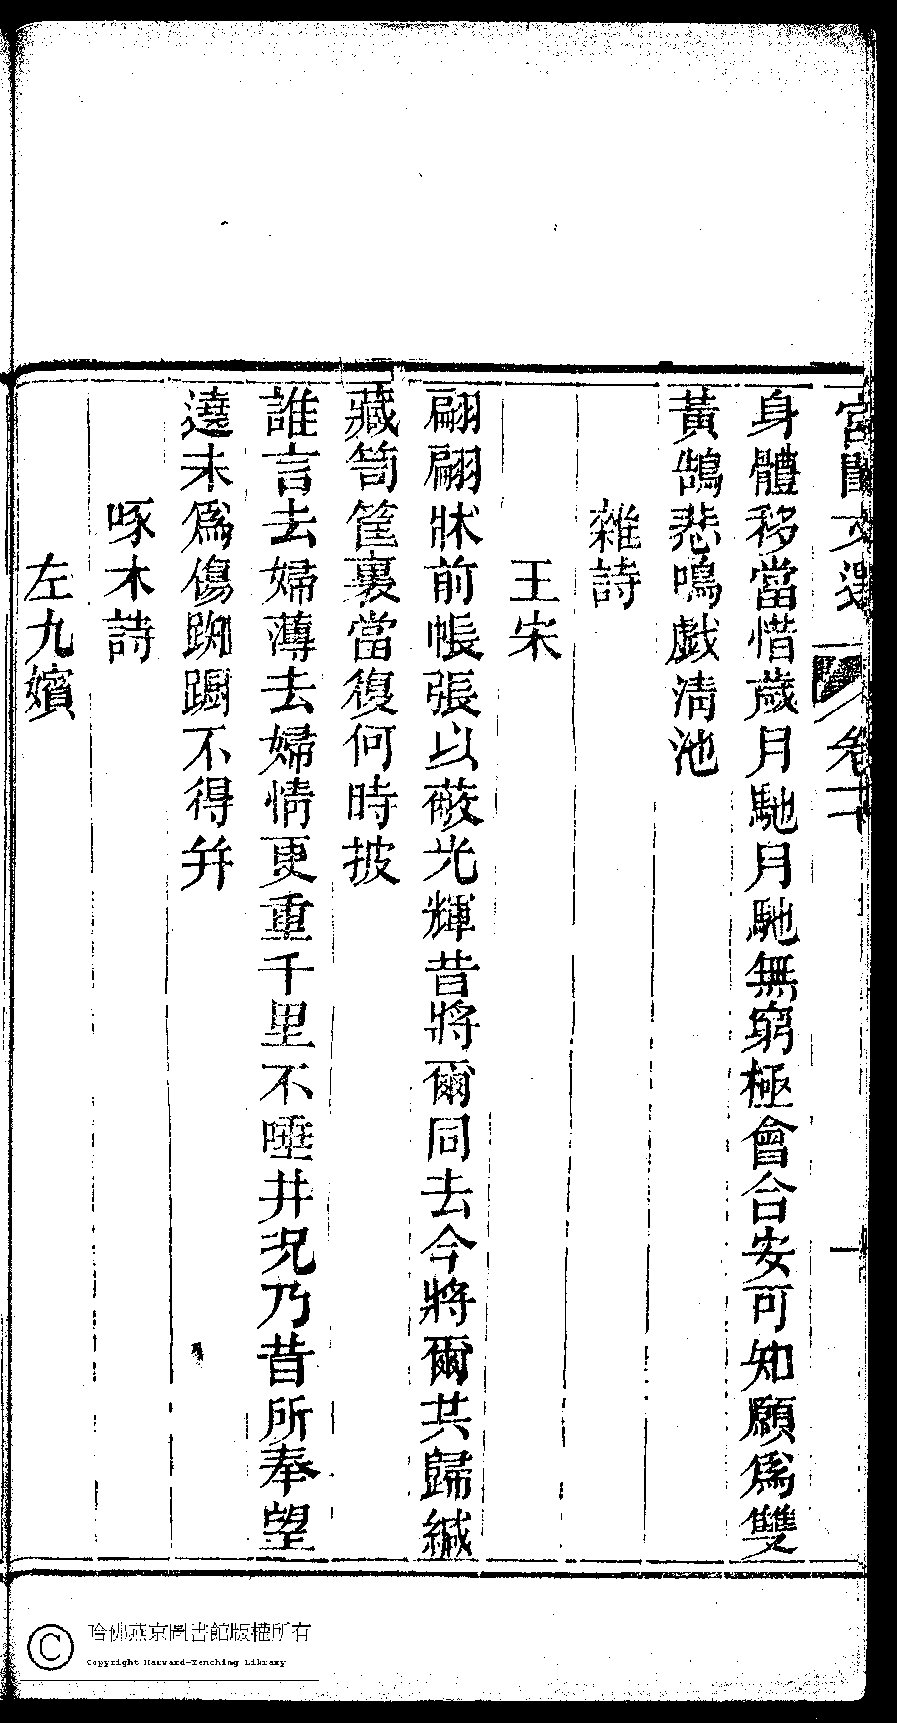 宮閨文選 卷十 一
身體移當惜歲月馳月馳無窮極會合安可知願爲雙
黃鵠悲鳴戯淸池
雜詩
王宋
翩翩牀前帳張以蔽光輝昔將爾同去今將爾共歸緘
藏笥筐裏當復何時披
誰言去婦薄去婦情更重千里不唾井况乃昔所奉望
遶未爲傷踟蹰不得幷
啄木詩
左九嬪
哈佛燕京圖書館版權所有
Copyright Harvard-Yenching Library